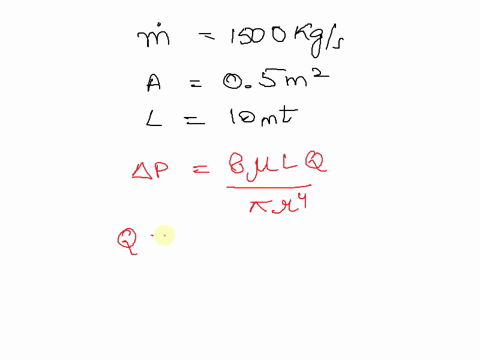 ṁ = 1500 Kg/s
A = 0.5 m²
L = 10 mt
ΔP = 8 μ L Q / π r⁴
Q -